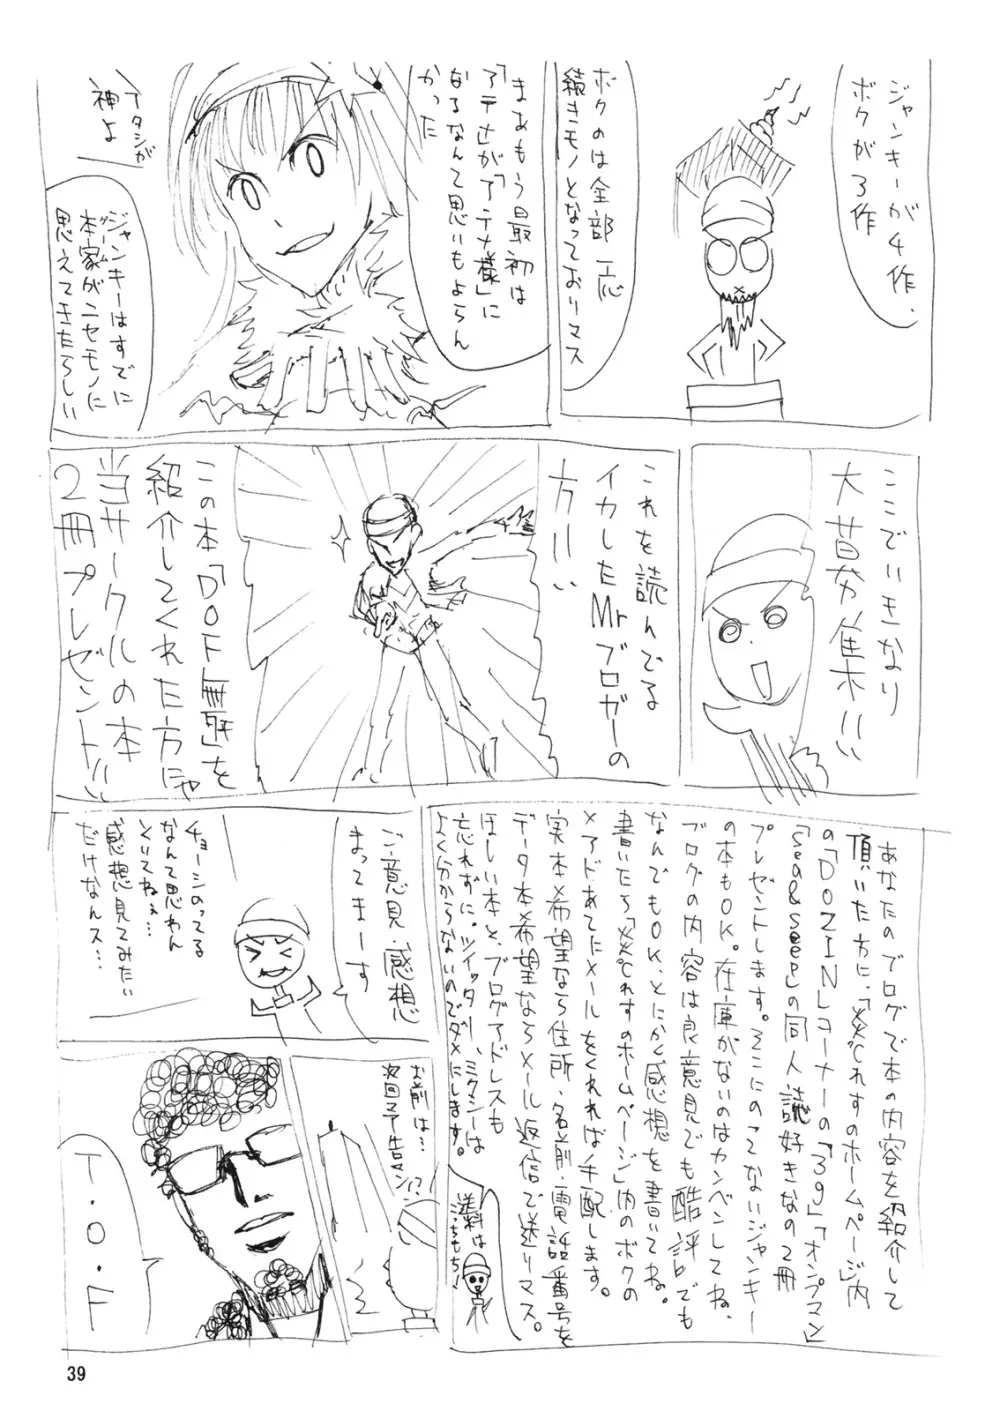 ジャンキーが4作、
ボクが3作
ボクのは全部一応
続きモノとなっておりマス
まあもう最初は
「アテナ」が「アテナ様」に
なるなんて思いもよらん
かった
アタシが
神よ
ジャンキーはすでに
本家がニセモノに
ゲーム
思えてきたらしい
ここでいきなり
大募集!!
これを読んでる
イカしたMrブロガーの
方!!
この本「DOF無冠」を
紹介してくれた方に
当サークルの本
2冊プレゼント!!
あなたのブログで本の内容を紹介して
頂いた方に、「炎じれすのホームページ」内
の「DOZIN」コーナーの「39」「オンプマン」
「sea&seep」の同人誌好きなの2冊
プレゼントします。そこにのってないジャンキー
の本もOK。在庫がないのはカンベンしてね。
ブログの内容は良意見でも酷評でも
なんでもOK、とにかく感想を書いてね。
書いたら「炎じれすのホームページ」内のボクの
メアドあてにメールをくれれば手配します。
実本希望なら住所・名前・電話番号を
データ本希望ならメール返信で送りマス。
ほしい本と、ブログアドレスも
忘れずに。ツイッター、ミクシーは
よく分からないのでダメにします。
送料は
こっちもち!
ご意見・感想
まってまーす
チョーシのってる
なんて思わん
といてねぇ…
感想見てみたい
だけなんス…
お前は…!?
次回予告マン
T・O・F
39